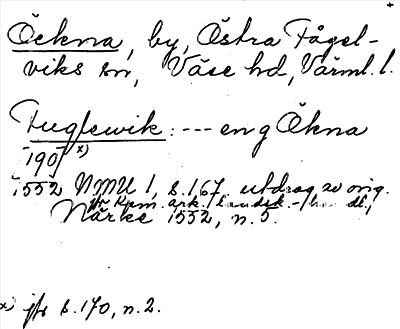 Öckna, by, Östra Fågel-
viks sn, Väse hd, Värml. l.
Fuglewik: --- en g Ökna
190 x)
1552 NMU 1, s. 167, utdrag av orig.
fr Kam. ark.
Närke 1552, n. 5.
x) jfr s. 170, n. 2.